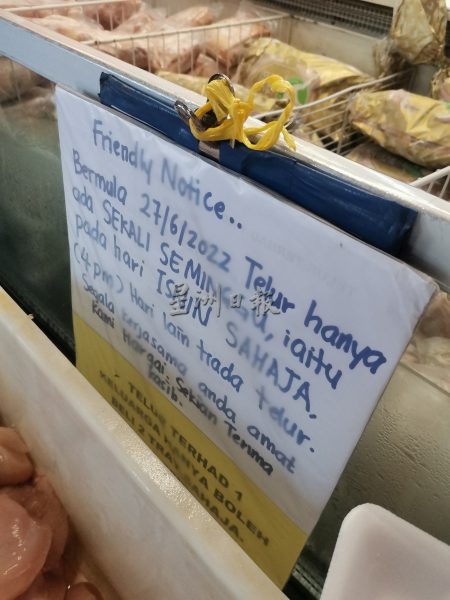 Friendly Notice..
Bermula 27/6/2022 Telur hanya
ada SEKALI SEMINGGU, iaitu
pada hari ISNIN SAHAJA.
(4.pm) Hari lain tiada telur.
Segala kerjasama anda amat
kami Hargai. Sekian Terima
kasih.
星洲日報
TELUR TERHAD 1
KELUARGA HANYA BOLEH
BELI 2 TRAY SAHAJA.